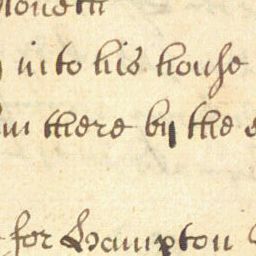 into his house
there by the
for Hampton